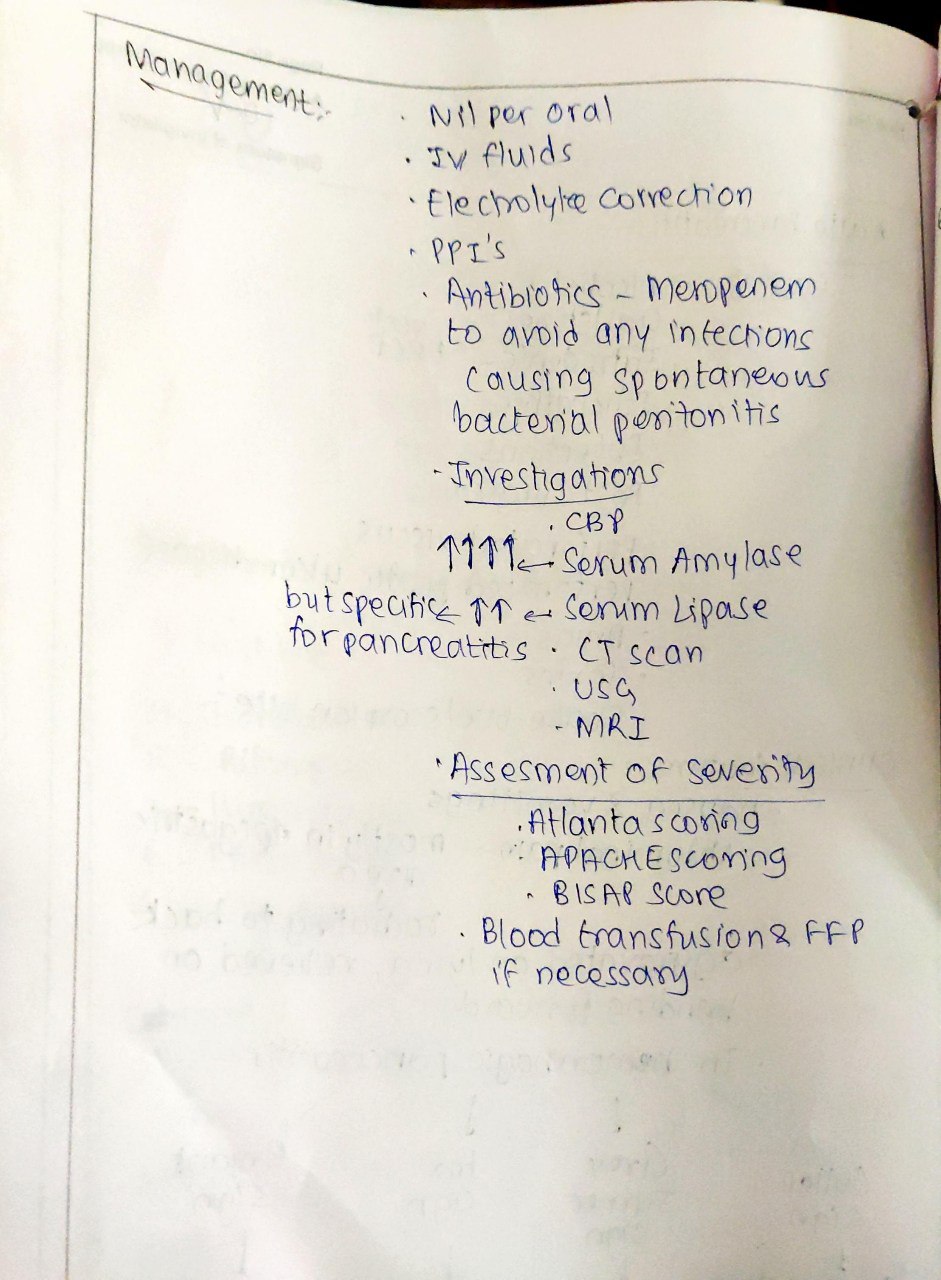 Management:-
· Nil per oral
· IV fluids
· Electrolyte correction
· PPI's
· Antibiotics - Meropenem
to avoid any infections
causing spontaneous
bacterial peritonitis
- Investigations
· CBP
↑↑↑↑ ← Serum Amylase
but specific ← ↑↑ ← Serum Lipase
for pancreatitis · CT scan
· USG
- MRI
· Assesment of severity
· Atlanta scoring
· APACHE scoring
· BISAP score
· Blood transfusion & FFP
if necessary